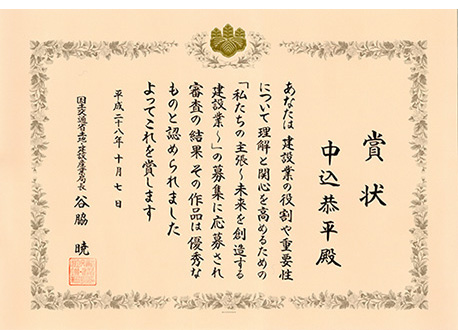 賞状
中込恭平殿
あなたは 建設業の役割や重要性
について理解と関心を高めるための
「私たちの主張～未来を創造する
建設業～」の募集に応募され
審査の結果 その作品は優秀な
ものと認められました
よってこれを賞します
平成二十八年十月七日
国土交通省土地・建設産業局長 谷脇 暁